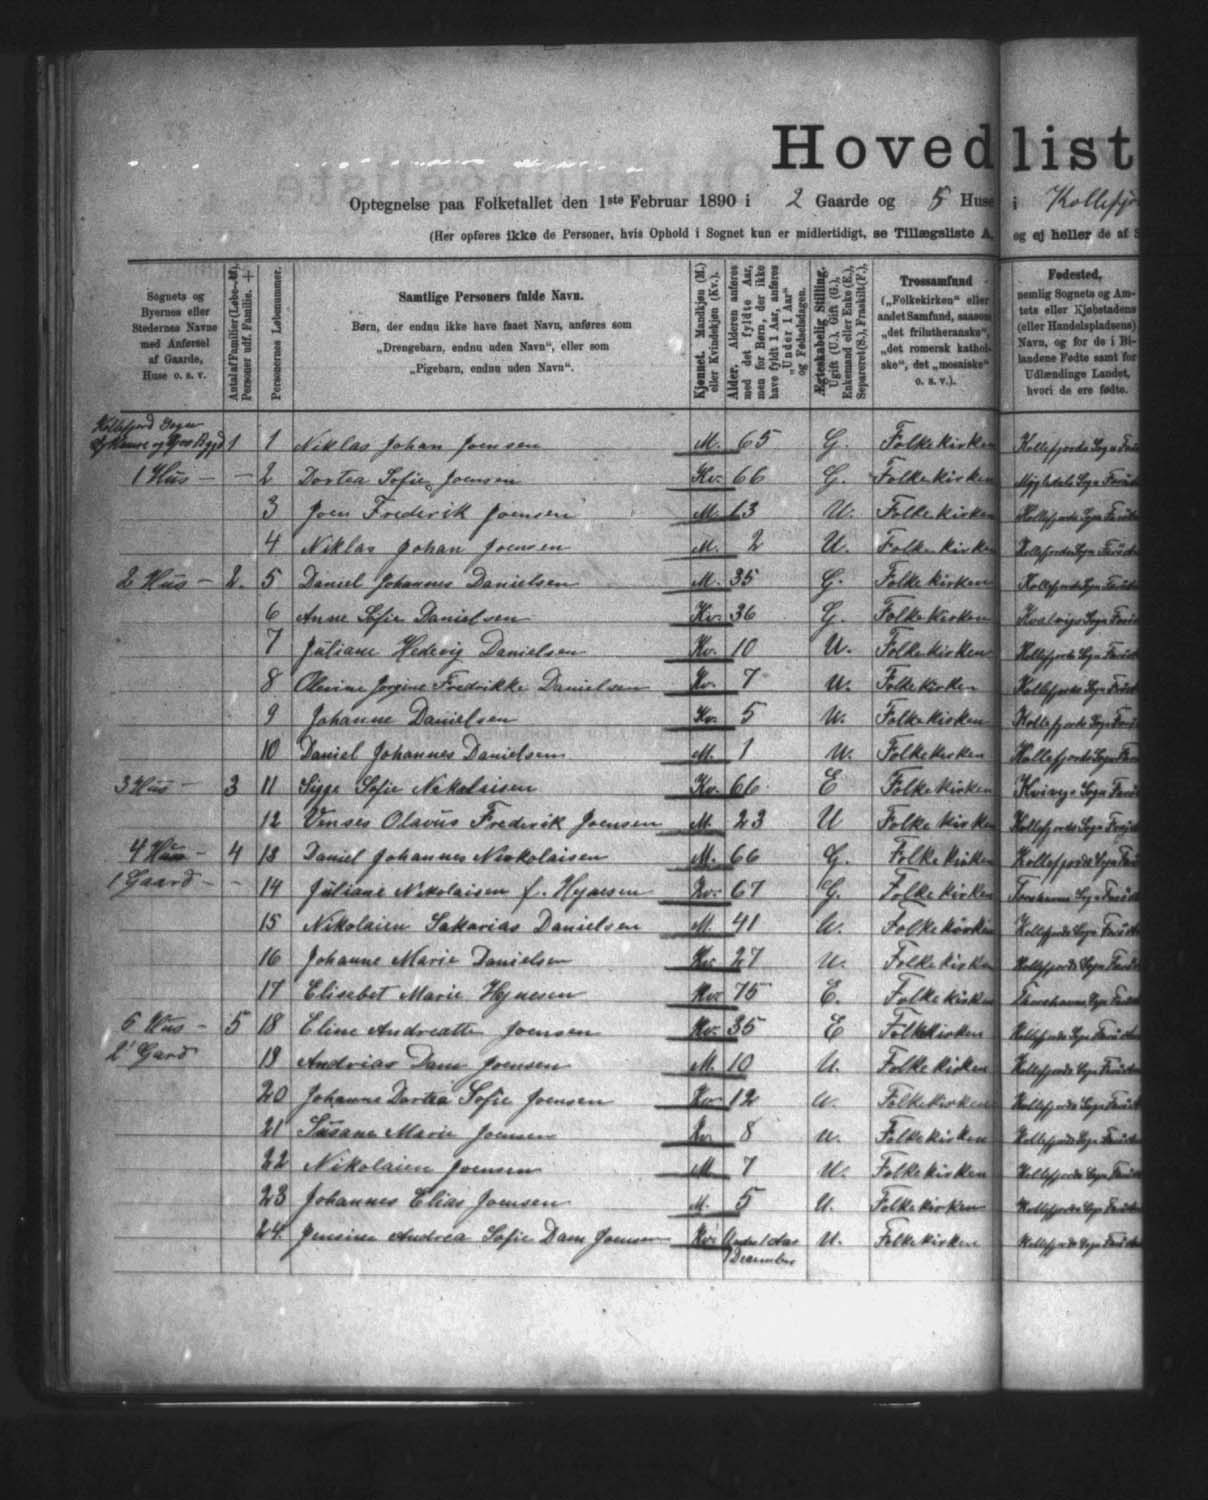 Hovedlist
Optegnelse paa Folketallet den 1ste Februar 1890 i 2 Gaarde og 5 Huse i Kollefjo
(Her opføres ikke de Personer, hvis Ophold i Sognet kun er midlertidigt, se Tillægsliste A, og ej heller de af S
Sognets og Byernes eller Stedernes Navne med Anførsel af Gaarde, Huse o. s. v.
Antal af Familier (Løbe-Nr). Personer udf. Familie. +
Personernes Løbenummer.
Samtlige Personers fulde Navn.
Børn, der endnu ikke have faaet Navn, anføres som
„Drengebarn, endnu uden Navn“, eller som
„Pigebarn, endnu uden Navn“.
Kjønnet. Mandkjøn (M.) eller Kvindekjøn (Kv.).
Alder. Alderen anføres med det fyldte Aar, men for Børn, der ikke have fyldt 1 Aar, anføres „Under 1 Aar“ og Fødselsdagen.
Ægteskabelig Stilling. Ugift (U.), Gift (G.), Enkemand eller Enke (E.), Separeret (S.), Fraskilt (F.),
Trossamfund
(„Folkekirken“ eller andet Samfund, saasom „det frilutheranske“, „det romersk katholske“, det „mosaiske“ o. s. v.).
Fødested,
nemlig Sognets og Amtets eller Kjøbstadens (eller Handelspladsens) Navn, og for de i Bilandene Fødte samt for Udlændinge Landet, hvori de ere fødte.
Kollefjord Sogn
1 1 Niklas Johan Joensen M. 65 G. Folkekirken Kollefjords Sogn Færø
1 Hus — — 2 Dortea Sofie Joensen Kv. 66 G. Folkekirken Sogn Færø
3 Joen Frederik Joensen M. 13 U. Folkekirken Kollefjords Sogn Færø
4 Niklas Johan Joensen M. 2 U. Folkekirken Kollefjords Sogn Færø
2 Hus — 2. 5 Daniel Johannes Danielsen M. 35 G. Folkekirken Kollefjords Sogn Færø
6 Anne Sofie Danielsen Kv. 36 G. Folkekirken Kvalvigs Sogn Færø
7 Juliane Hedevig Danielsen Kv. 10 U. Folkekirken Kollefjords Sogn Færø
8 Olevine Jorgine Fredrikke Danielsen Kv. 7 U. Folkekirken Kollefjords Sogn Færø
9 Johanne Danielsen Kv. 5 U. Folkekirken Kollefjords Sogn Færø
10 Daniel Johannes Danielsen M. 1 U. Folkekirken Kollefjords Sogn Færø
3 Hus — 3 11 Sigge Sofie Nikolaisen Kv. 66 E Folkekirken Kvivigs Sogn Færø
12 Venses Olavus Frederik Joensen M. 23 U Folkekirken Kollefjords Sogn Færø
4 Hus — 4 13 Daniel Johannes Nikolaisen M. 66 G. Folkekirken Kollefjords Sogn Færø
1 Gaard — — 14 Juliane Nikolaisen f. Hejnesen Kv. 67 G. Folkekirken Sogn Færø
15 Nikolaien Sakarias Danielsen M. 41 U. Folkekirken Kollefjords Sogn Færø
16 Johanne Marie Danielsen Kv. 27 U. Folkekirken Kollefjords Sogn Færø
17 Elisebet Marie Hejnesen Kv. 75 E. Folkekirken Thorshavns Sogn Færø
5 Hus — 5 18 Eline Andreatte Joensen Kv. 35 E Folkekirken Kollefjords Sogn Færø
2 Gard 19 Andrias Dam Joensen M. 10 U. Folkekirken Kollefjords Sogn Færø
20 Johanne Dortea Sofie Joensen Kv. 12 U. Folkekirken Kollefjords Sogn Færø
21 Susane Marie Joensen Kv. 8 U. Folkekirken Kollefjords Sogn Færø
22 Nikolaien Joensen M. 7 U. Folkekirken Kollefjords Sogn Færø
23 Johannes Elias Joensen M. 5 U. Folkekirken Kollefjords Sogn Færø
24. Jensine Andrea Sofie Dam Joensen Kv. Under 1 Aar December U. Folkekirken Kollefjords Sogn Færø